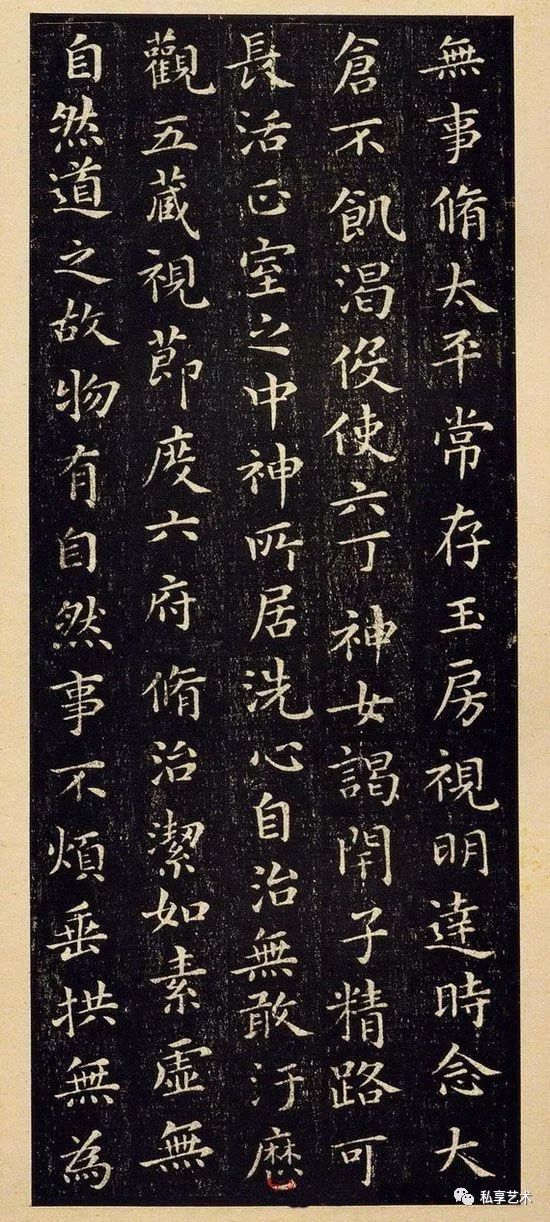 無事脩太平常存玉房視明達時念大
倉不飢渴伇使六丁神女謁閇子精路可
長活正室之中神所居洗心自治無敢汙歷
觀五藏視節度六府脩治潔如素虛無
自然道之故物有自然事不煩垂拱無為
私享艺术